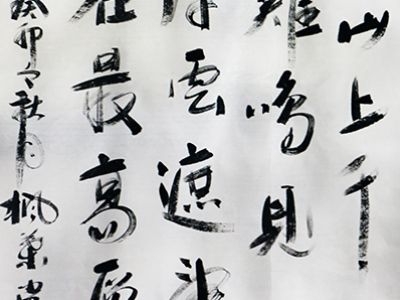 山上千
雞鳴見
浮雲遮
在最高層
癸卯秋月楓葉